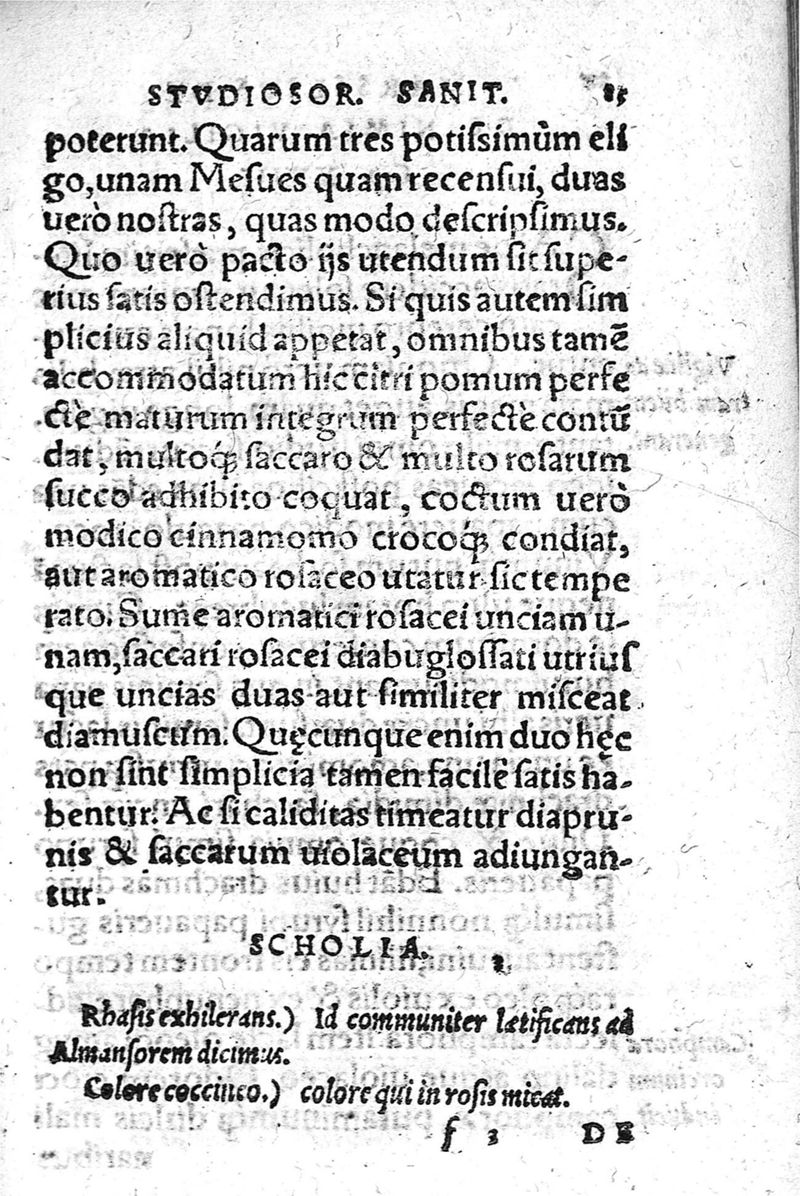 STVDIOSOR. SANIT. 85
poterunt. Quarum tres potiſsimùm eli
go, unam Meſues quam recenſui, duas
uerò noſtras, quas modo deſcripſimus.
Quo uerò pacto ijs utendum ſit ſupe-
rius ſatis oſtendimus. Si quis autem ſim
plicius aliquid appetat, omnibus tamẽ
accommodatum hic citri pomum perfe
ctè maturum integrum perfectè contũ
dat, multoq́; ſaccaro & multo roſarum
ſucco adhibito coquat, coctum uerò
modico cinnamomo crocoq́; condiat,
aut aromatico roſaceo utatur ſic tempe
rato. Sume aromatici roſacei unciam u-
nam, ſaccari roſacei diabugloſſati utriuſ
que uncias duas aut ſimiliter miſceat
diamuſcum. Quęcunque enim duo hęc
non ſint ſimplicia tamen facilè ſatis ha-
bentur. Ac ſi caliditas timeatur diapru-
nis & ſaccarum uiolaceum adiungan-
tur.
SCHOLIA.
Rhaſis exhilerans.) Id communiter lætificans ad
Almanſorem dicimus.
Colore coccineo.) colore qui in roſis micat.
f 3 DE